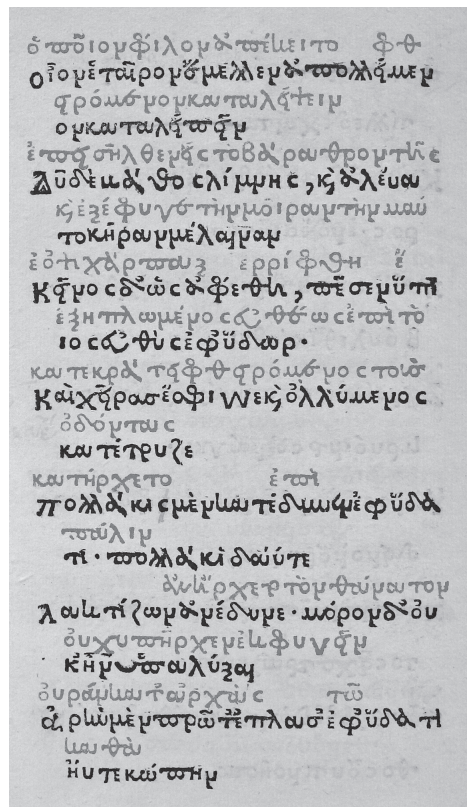 ὁποῖον φίλον ἀπέκειτο φθ
οἷον ἑταῖρον ἔμελλεν ἀπολλύμεν
ειρόμενον καταλείψειν
ον καταλείπειν
ἐπεισῆλθεν εἰς τὸ βάραθρον τῆς
Δῦ δὲ βάθος λίμνης, καὶ ἀλεύα
καὶ ἐξέφυγε τὴν μοῖραν τὴν μαύ
το κῆραν μέλαιναν
χάρπαξ ἐρρίφθη ἔ
Κεῖνος δ' ὡς ἀφέθη, πέσεν ὕπτι
ἐξηπλωμένος εὐθέως ἐπὶ τὸ
ος εὐθὺς ἐφ ὕδωρ.
κατεκράτει φθειρόμενος τοὺς
Καὶ χεῖρας ἔσφιγγε καὶ ὀλλύμενος
ὀδόντας
κατέτρυζε
κατήρχετο ἐπὶ
πολλάκις μὲν κατέδυνεν ἐφ ὕδα
πάλιν
τι· πολλάκι δαύτε
ἀνήρχετο τὸν θάνατον
λακτίζων ἀνέδυνε· μόρον δ' οὐ
οὐχ ὑπῆρχεν ἐκφυγεῖν
κ ἦν ὑπαλύξαι
οὐρὰν κατάρχας τῷ
μὲν πρῶτ' ἔπλασ' ἐφ ὕδατι
καθὰ
ἠύτε κώπην